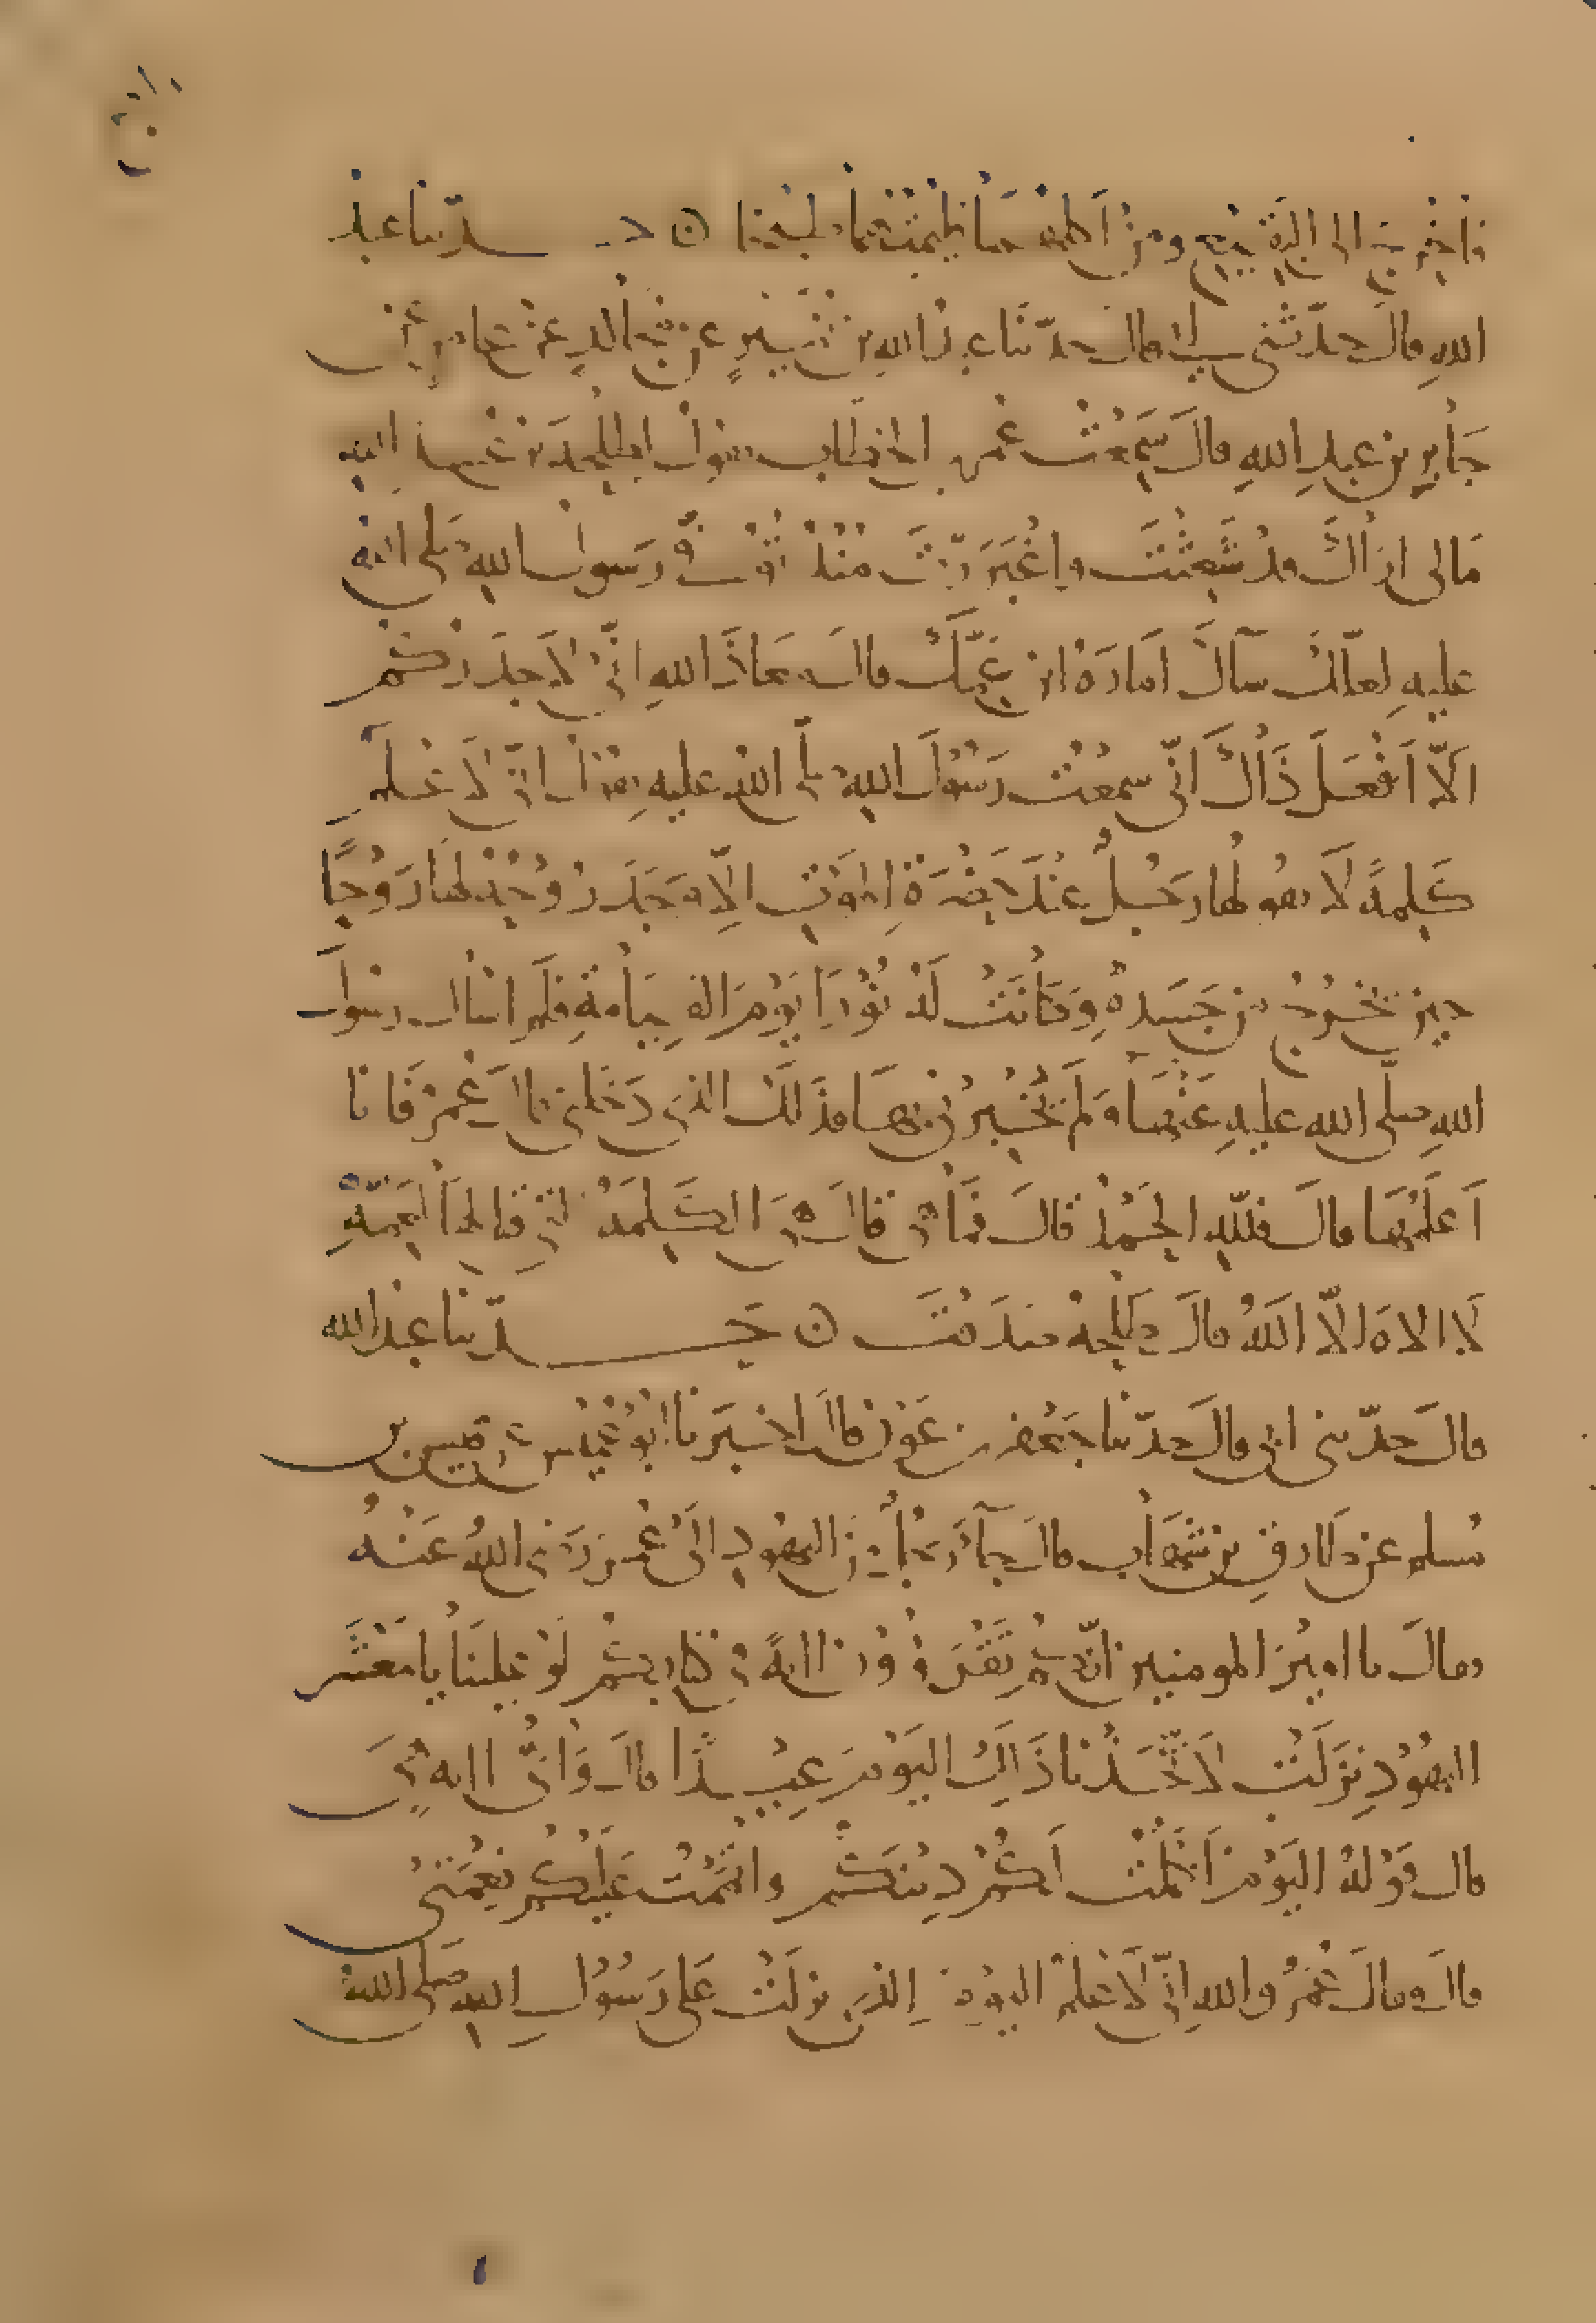 فأخرج الى البقيع ومن أكلهما فليمتهما طبخا ۞ حدّثنا عبد
اللهِ قالَ حدّثنى ابى قال حدّثنا عبد اللهِ بن نُمَيرٍ عن مُجَالدٍ عن عامرٍ عن
جَابرِ بن عبدِ اللهِ قالَ سَمِعْتُ عُمر بن الخطاب يقول لطلحةَ بن عُبيد الله
مَالى اراكَ قد شَعِثْتَ واغْبَرَرْتَ مُنْذُ تُوُفّىَ رَسولُ اللهِ صَلى الله
عليهِ لعلّكَ سآكَ امَارَةُ ابن عَمّكَ قالَ معَاذَ اللهِ انّى لاَجدَرُكُم
اَلّا اَفْعَلَ ذَاكَ انّى سمعْتُ رَسُولَ اللهِ صلّى اللهُ عليهِ يقُولُ انّى لاَعْلَمُ
كَلِمةً لَا يقولها رَجُلٌ عنْدَ حَضْرَةِ الموْتِ الّا وَجَدَ رُوْحُهُ لهَا رَوْحًا
حينَ تخْرُجُ من جَسَدهِ وَكَانَتْ لَهُ نُوْرًا يَوْمَ القِيَامةِ فلَم اسَال رسُولَ
اللهِ صلّى الله عليهِ عَنْهَا وَلَم يُخْبِرْنى بهَا فذَلكَ الذى دَخَلنى قالَ عُمرُ فَانا
اَعْلَمُهَا قالَ فللّهِ الحَمْدُ قالَ فَمَا هى قالَ هىَ الكَلِمَةُ التى قالهَا لِعَمّهِ
لَا الاهَ الّا اللهُ قالَ طلحة صَدَقْتَ ۞ حَدّثنا عبْد الله
قالَ حدّثنى ابى قالَ حدّثنا جَعْفر بن عَوْن قالَ اخبَرنا ابُو عُمَيْس عن قيس بن
مُسلم عن طَارقِ بن شهَاب قالَ جآءَ رَجُلٌ منَ اليهُودِ الَى عُمَر رَضىَ اللهُ عَنْهُ
وقالَ يا اميْرَ المومنين انّكُم تَقْرَؤُوْنَ ايَةً فى كتَابكُم لَوْ عَلينَا يَا مَعْشَر
اليهُوْدِ نزَلَتْ لاَتّخَذْنَا ذَلِكَ اليَوْمَ عِيْدًا قالَ وَاَىُّ ايةٍ هىَ
قالَ قَوْلهُ اليَوْمَ اَكْمَلْتُ لَكُمْ دِيْنَكُم واتْمَمْتُ عَلَيْكُم نِعْمَتىْ
قالَ وقالَ عُمَرُ واللهِ انّى لاَعْلمُ اليوْمَ الذى نزلَتْ عَلى رَسُوْلِ اللهِ صَلى اللهُ